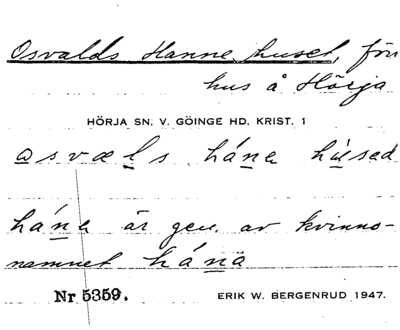 Osvalds Hanne huset, förr
hus å Hörja
HÖRJA SN. V. GÖINGE HD, KRIST. 1
osvæls hána húsed
hána är gen. av kvinno-
namnet hánä
Nr 5359.
ERIK W. BERGENRUD 1947.